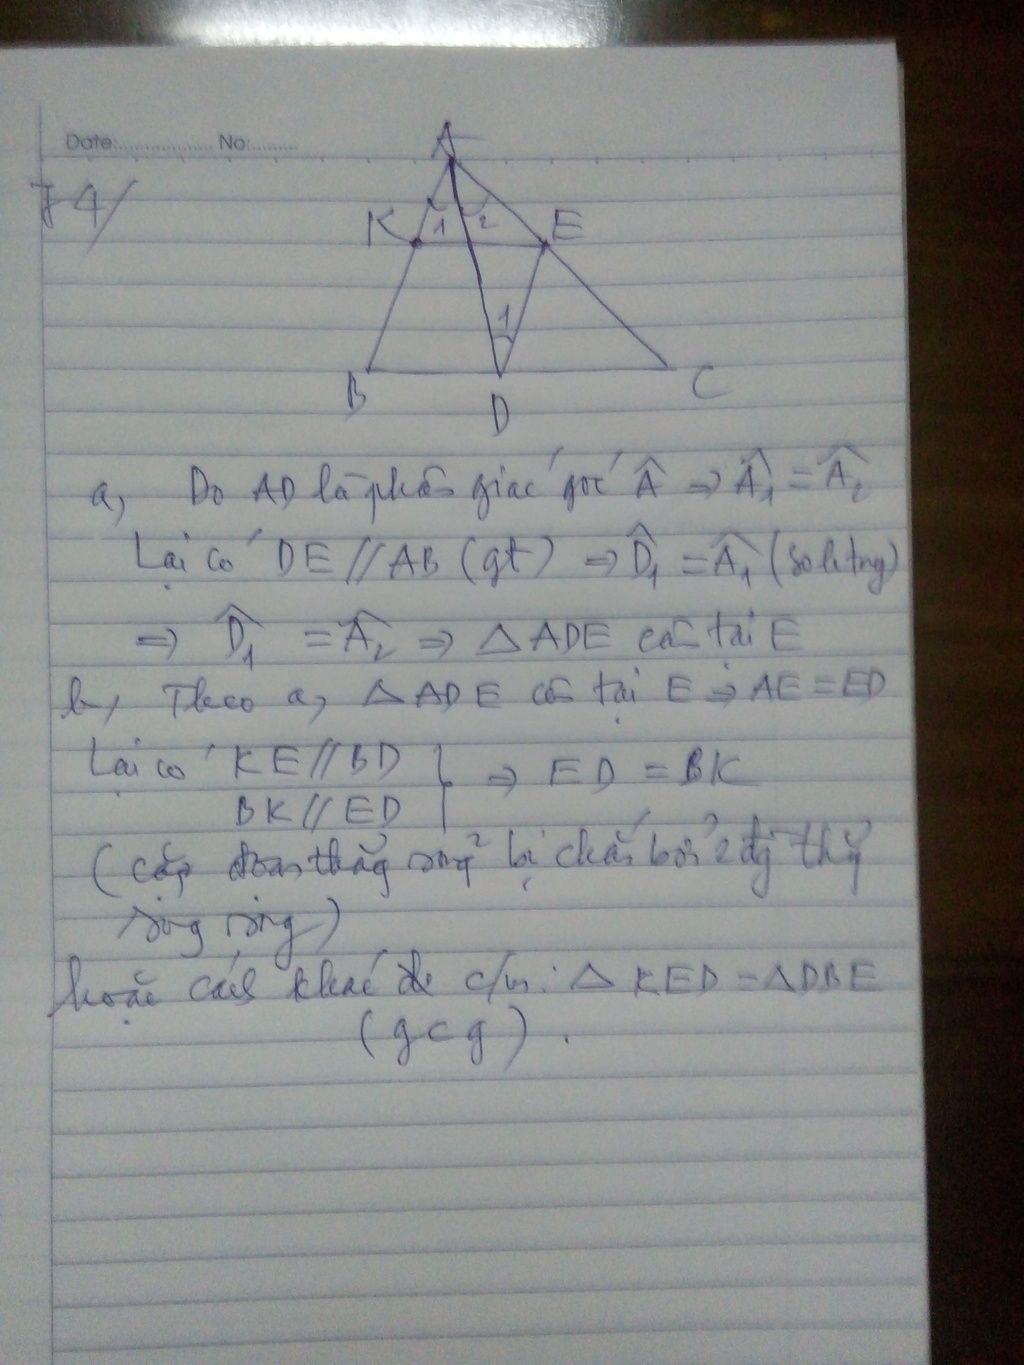 Date:................ No:..........
74/
A
K 1 2 E
1
B D C
a, Do AD là phân giác góc Â ⇒ Â₁ = Â₂
Lại có DE // AB (gt) ⇒ D̂₁ = Â₁ (so le trg)
⇒ D̂₁ = Â₂ ⇒ △ ADE cân tại E
b, Theo a, △ ADE cân tại E ⇒ AE = ED
Lại có KE // BD } ⇒ ED = BK
BK // ED
(cặp đoạn thẳng song² bị chắn bởi 2 đg thg
song song)
hoặc cách khác để c/m: △ KED = △DBE
(gcg).